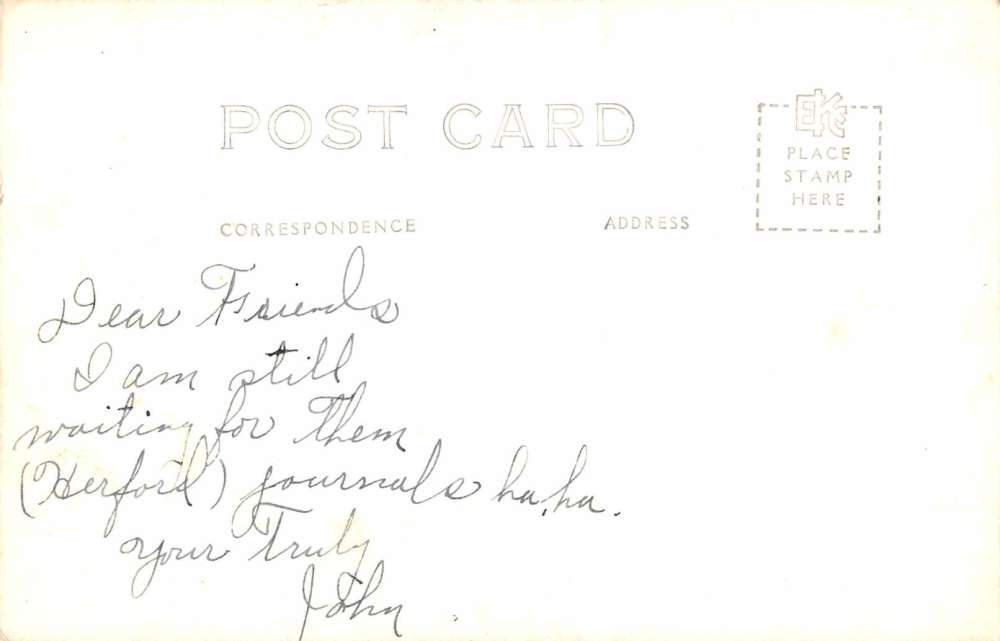 POST CARD
EKC
PLACE
STAMP
HERE
CORRESPONDENCE
ADDRESS
Dear Friends
I am still
waiting for them
(Herford) journals ha, ha.
your Truly
John